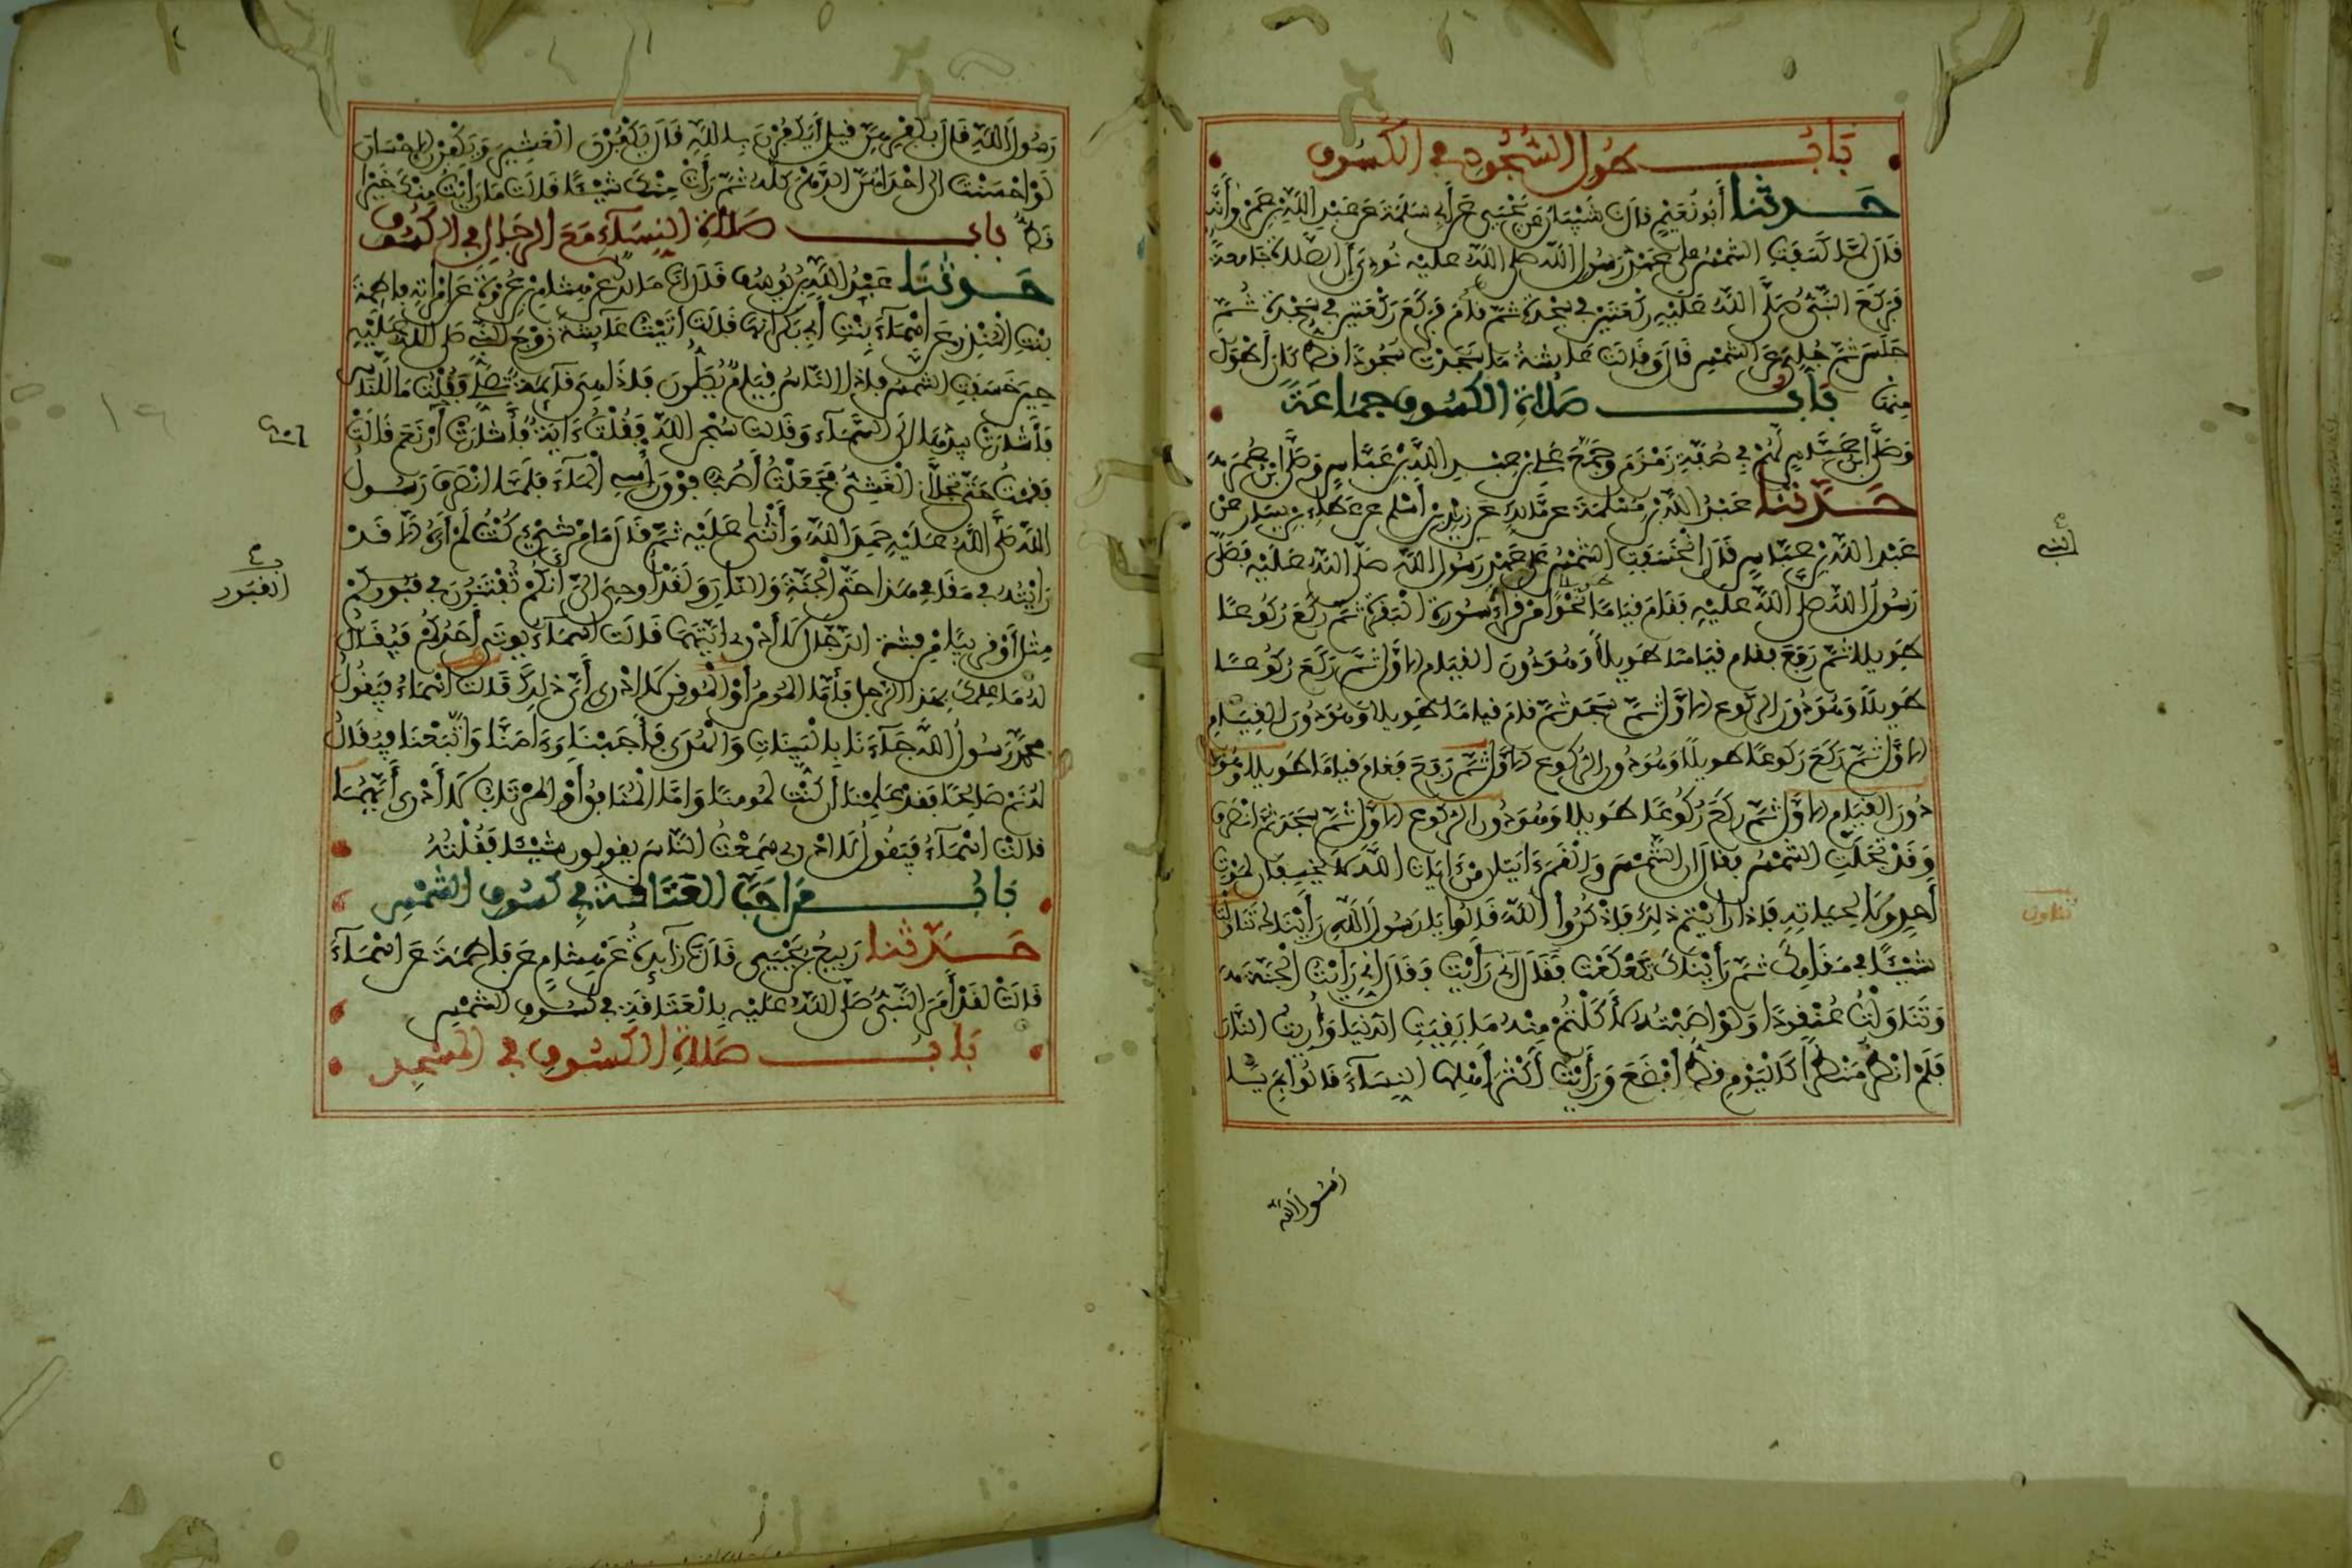 باب طول السجود في الكسوف
حدثنا أبو نعيم قال نا شيبان عن يحيى عن أبي سلمة عن عبد الله بن عمرو أنه
قال لما كسفت الشمس على عهد رسول الله صلى الله عليه نودي أن الصلاة جامعة
فركع النبي صلى الله عليه ركعتين في سجدة ثم قام فركع ركعتين في سجدة ثم
جلس ثم جلي عن الشمس قال وقالت عائشة ما سجدت سجودا قط كان أطول
منها باب صلاة الكسوف جماعة
وصلى ابن عباس لهم في صفة زمزم وجمع علي بن عبد الله بن عباس وصلى ابن عمر
حدثنا عبد الله بن مسلمة عن مالك عن زيد بن أسلم عن عطاء بن يسار عن
عبد الله بن عباس قال انخسفت الشمس على عهد رسول الله صلى الله عليه فصلى
رسول الله صلى الله عليه فقام قياما نحوا من قراءة سورة البقرة ثم ركع ركوعا
طويلا ثم رفع فقام قياما طويلا وهو دون القيام الأول ثم ركع ركوعا
طويلا وهو دون الركوع الأول ثم سجد ثم قام قياما طويلا وهو دون القيام
الأول ثم ركع ركوعا طويلا وهو دون الركوع الأول ثم رفع فقام قياما طويلا وهو
دون القيام الأول ثم ركع ركوعا طويلا وهو دون الركوع الأول ثم سجد ثم انصرف
وقد تجلت الشمس فقال إن الشمس والقمر ءايتان من ءايات الله لا يخسفان لموت
أحد ولا لحياته فإذا رأيتم ذلك فاذكروا الله قالوا يا رسول الله رأيناك تناولت
شيئا في مقامك ثم رأيناك تكعكعت فقال إني رأيت وقال إني رأيت الجنة
وتناولت عنقودا ولو أصبته لأكلتم منه ما بقيت الدنيا وأريت النار
فلم أنظر منظرا كاليوم قط أفظع ورأيت أكثر أهلها النساء قالوا بم يا
رسول الله
رسول الله قال بكفرهن قيل أيكفرن بالله قال يكفرن العشير ويكفرن الإحسان
لو أحسنت إلى إحداهن الدهر كله ثم رأت منك شيئا قالت ما رأيت منك خيرا
قط باب صلاة النساء مع الرجال في الكسوف
حدثنا عبد الله بن يوسف قال انا مالك عن هشام بن عروة عن امرأته فاطمة
بنت المنذر عن أسماء بنت أبي بكر أنها قالت أتيت عائشة زوج النبي صلى الله عليه
حين خسفت الشمس فإذا الناس قيام يصلون فإذا هي قائمة تصلي فقلت ما للناس
فأشارت بيدها إلى السماء وقالت سبحن الله فقلت ءاية فأشارت أي نعم قالت
فقمت حتى تجلاني الغشي فجعلت أصب فوق رأسي الماء فلما انصرف رسول
الله صلى الله عليه حمد الله وأثنى عليه ثم قال ما من شيء كنت لم أره إلا قد
رأيته في مقامي هذا حتى الجنة والنار ولقد أوحي إلي أنكم تفتنون في قبوركم
مثل أو قريبا من فتنة الدجال لا أدري أيتهما قالت أسماء يوتى أحدكم فيقال
له ما علمك بهذا الرجل فأما المومن أو الموقن لا أدري أي ذلك قالت أسماء فيقول
محمد رسول الله جاءنا بالبينات والهدى فأجبنا وءامنا واتبعنا فيقال
له نم صالحا فقد علمنا أن كنت لمومنا وأما المنافق أو المرتاب لا أدري أيتهما
قالت أسماء فيقول لا أدري سمعت الناس يقولون شيئا فقلته
باب من أحب العتاقة في كسوف الشمس
حدثنا ربيع بن يحيى قال نا زائدة عن هشام عن فاطمة عن أسماء
قالت لقد أمر النبي صلى الله عليه بالعتاقة في كسوف الشمس
باب صلاة الكسوف في المسجد
القبور